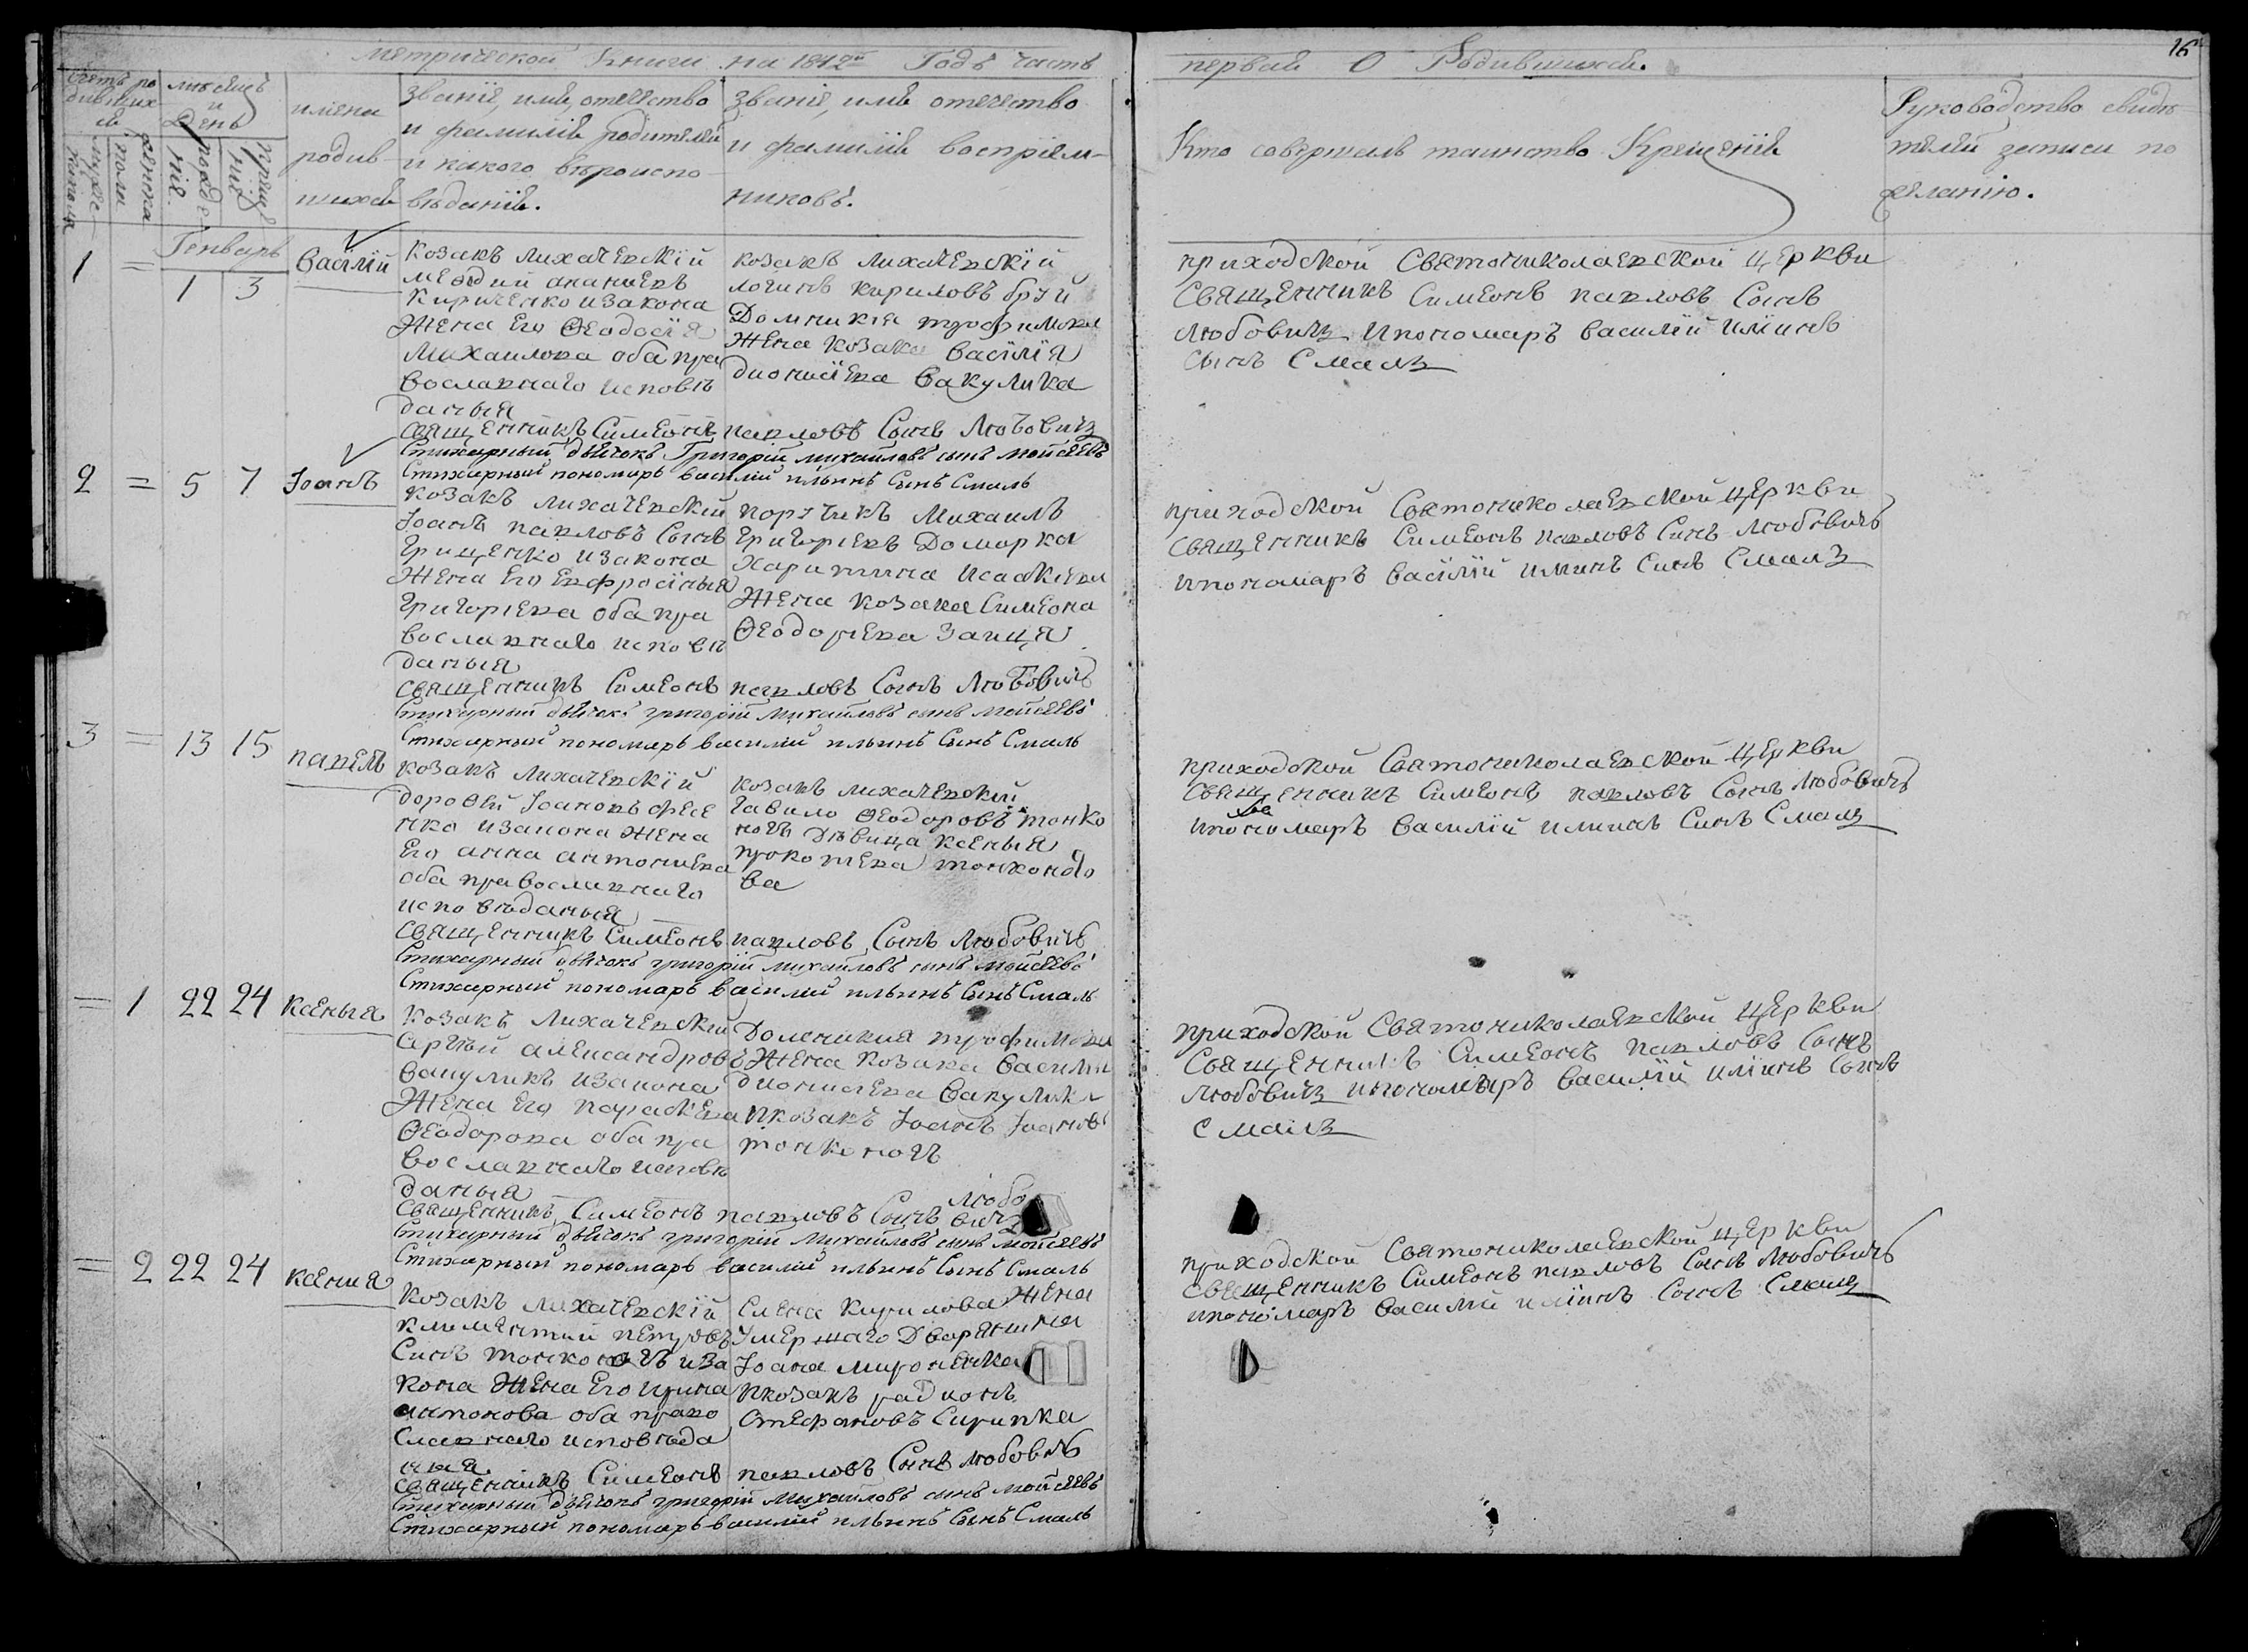 метрической Книги на 1842й Годъ часть
первая О Родившихся.
16
Счетъ ро
дивших
ся
мужес
каго пола
женска
пола
мѣсяцъ
и
День
рожде
ніе.
креще
ніе
имена
родив-
шихся
Званіе, имя, отечество
и фамилія родителей
и какого вѣроиспо-
вѣданія.
Званіе, имя отечество
и фамилія воспріем-
никовъ.
Кто совершалъ таинство Крещенія
Руководство свидѣ-
телей записи по
желанію.
Генварь
1 = 1 3 Василій
козакъ лихачевскій
меѳодій ананіевъ
Кириченко изакона
жена Его Ѳеодосія
Михаилова оба пра
вославнаго исповѣ
данья
козакъ лихачевскій
логинъ кириловъ бруй
Домникія трофимова
жена козака василія
дионисіева Вакулика
приходской Святониколаевской церкви
Священникъ Симеонъ павловъ Сынъ
Любовичъ Ипономаръ василій иліинъ
сынъ Смаль
священникъ Симеонъ павловъ Сынъ Любовичъ
Стихарный дьячокъ Григорій михайловъ сынъ мойсеевъ
Стихарный пономарь василій ильинъ Сынъ Смаль
2 = 5 7 Іоанъ
козакъ лихачевскій
Іоанъ павловъ Сынъ
Грищенко изакона
жена Его Евфросинья
григориева оба пра
вославнаго исповѣ
данья
поручикъ Михаилъ
Григориевъ Доморка
Харитина Исаакиева
жена козака Симеона
Ѳеодориева Заиця
приходской Святониколаевской церкви
священникъ Симеонъ павловъ Синъ Любовичъ
ипономаръ василій илинъ Синъ Смаль
священникъ Симеонъ павловъ Сынъ Любовичъ
Стихарный дьячокъ григорій михайловъ сынъ мойсеевъ
Стихарный пономарь василій ильинъ Сынъ Смаль
3 = 13 15 павелъ
козакъ лихачевскій
дороѳей Іоановъ фесе
нко изакона жена
Его анна антониева
оба православнаго
исповѣданья
козакъ лихачевскій
гавило Ѳеодоровъ тонко
ногъ Дѣвица ксенья
прокопиева тонконого
ва
приходской Святониколаевской церкви
священникъ Симеонъ павловъ Сынъ Любовичъ
ипономаръ василій илиинъ Синъ Смаль
священникъ Симеонъ павловъ Сынъ Любовичъ
Стихарный дьячокъ григорій михайловъ сынъ мойсеевъ
Стихарный пономарь василій ильинъ Сынъ Смаль
= 1 22 24 ксенья
козакъ лихачевскій
Сергѣй александровъ
вакуликъ изакона
жена Его параскева
Ѳеодорова оба пра
вославнаго исповѣ
данья
Доменикия трофимова
жена козака василия
дионисиева вакулика
икозакъ Іоанъ Іоановъ
тонконогъ
приходской Святониколаевской церкви
Священникъ Симеонъ павловъ Сынъ
Любовичъ ипономаръ василій иліинъ Сынъ
Смаль
священникъ Симеонъ павловъ Сынъ Любо
вичъ
Стихарный дьячокъ григорій михайловъ сынъ мойсеевъ
Стихарный пономарь василій ильинъ Сынъ Смаль
= 2 22 24 ксения
козакъ лихачевскій
климентий петровъ
Синъ тонконогъ иза
кона жена Его ирина
антонова оба право
славнаго исповѣда
нья
Елена Кирилова жена
умершаго Дворянина
Іоана мироненка
икозакъ радионъ
Стефановъ Сирипка
приходской Святониколаевской церкви
священникъ Симеонъ павловъ Сынъ Любовичъ
ипономаръ василій иліинъ Сынъ Смаль
священникъ Симеонъ павловъ Сынъ Любовичъ
Стихарный дьячокъ григорій михайловъ сынъ мойсеевъ
Стихарный пономарь василій ильинъ Сынъ Смаль